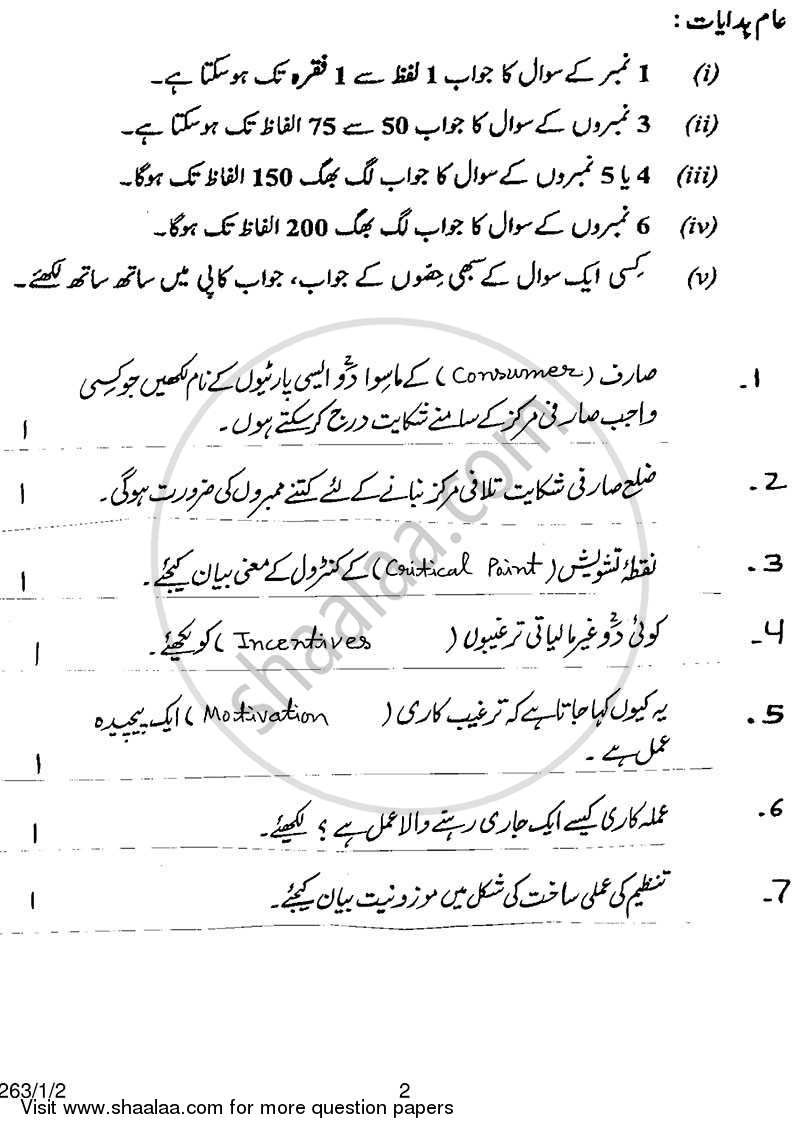 عام ہدایات :
(i) 1 نمبر کے سوال کا جواب 1 لفظ سے 1 فقرہ تک ہوسکتا ہے۔
(ii) 3 نمبروں کے سوال کا جواب 50 سے 75 الفاظ تک ہوسکتا ہے۔
(iii) 4 یا 5 نمبروں کے سوال کا جواب لگ بھگ 150 الفاظ تک ہوگا۔
(iv) 6 نمبروں کے سوال کا جواب لگ بھگ 200 الفاظ تک ہوگا۔
(v) کسی ایک سوال کے سبھی حصّوں کے جواب، جواب کاپی میں ساتھ ساتھ لکھئے۔
1۔ صارف (Consumer) کے ماسوا دو2 ایسی پارٹیوں کے نام لکھیں جو کسی
واجب صارفی مرکز کے سامنے شکایت درج کرسکتے ہوں۔ 1
2۔ ضلع صارفی شکایت تلافی مرکز بنانے کے لئے کتنے ممبروں کی ضرورت ہوگی۔ 1
3۔ نقطۂ تشویش (Critical Point) کے کنٹرول کے معنی بیان کیجئے۔ 1
4۔ کوئی دو2 غیر مالیاتی ترغیبوں (Incentives) کو لکھئے۔ 1
5۔ یہ کیوں کہا جاتا ہے کہ ترغیب کاری (Motivation) ایک پیچیدہ
عمل ہے۔ 1
6۔ عملہ کاری کیسے ایک جاری رہنے والا عمل ہے؟ لکھئے۔ 1
7۔ تنظیم کی عملی ساخت کی شکل میں موزونیت بیان کیجئے۔ 1
shaalaa.com
263/1/2 2
Visit www.shaalaa.com for more question papers